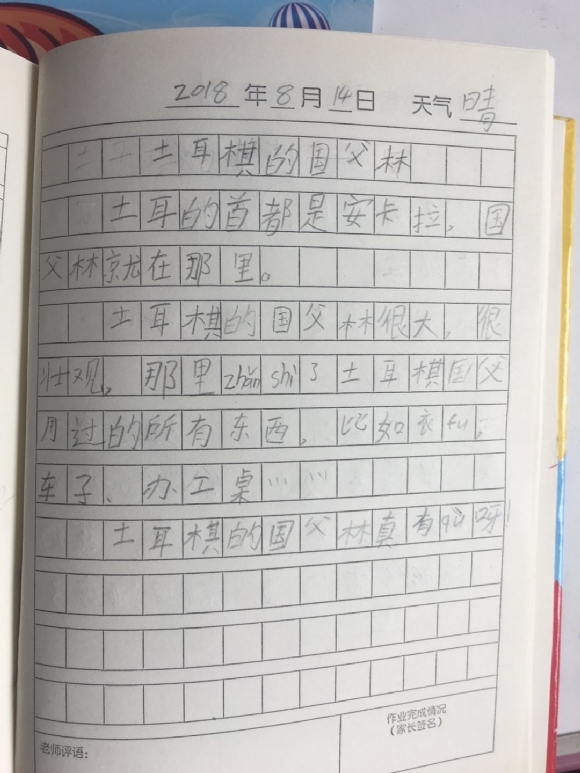 2018年8月14日 天气 晴
土耳棋的国父林
土耳的首都是安卡拉，国
父林就在那里。
土耳棋的国父林很大，很
壮观，那里zhǎn shì了土耳棋国父
用过的所有东西，比如衣fu，
车子、办工桌……
土耳棋的国父林真有qù呀！
老师评语：
作业完成情况
（家长签名）